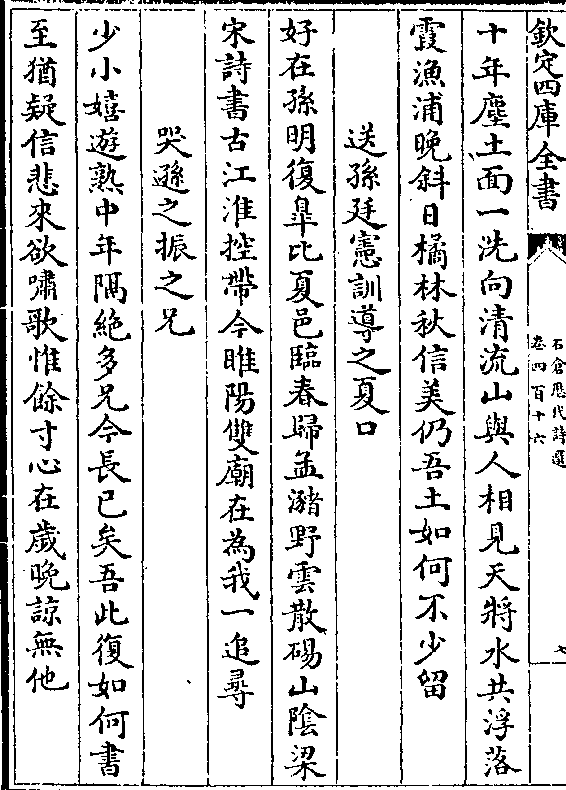 欽定四庫全書
石倉歷代詩選
卷四百十六
七
十年塵土面一洗向清流山與人相見天將水共浮落
霞漁浦晚斜日橘林秋信美仍吾土如何不少留
送孫廷憲訓導之夏口
好在孫明復臯比夏邑臨春歸孟瀦野雲散碭山陰梁
宋詩書古江淮控帶今睢陽雙廟在為我一追尋
哭遜之振之兄
少小嬉遊熟中年隔絶多兄今長已矣吾此復如何書
至猶疑信悲來欲嘯歌惟餘寸心在歲晩諒無他